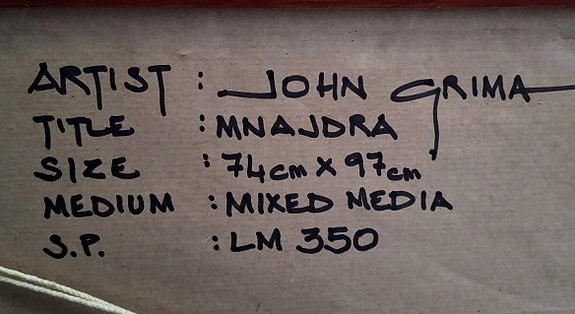 ARTIST : JOHN GRIMA
TITLE : MNAJDRA
SIZE : 74cm X 97cm
MEDIUM : MIXED MEDIA
S.P. : LM 350